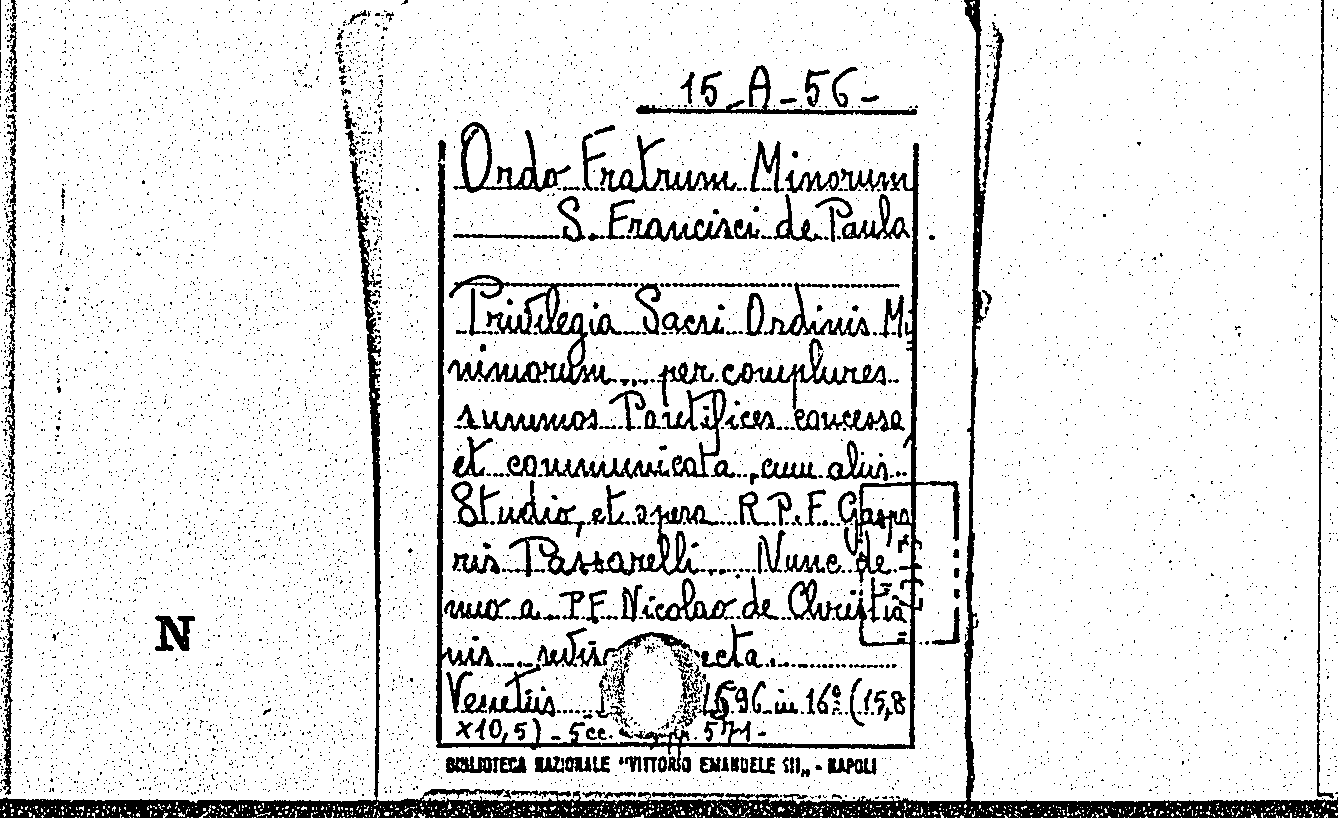 15-A-56-
Ordo Fratrum Minorum
S. Francisci de Paula.
Privilegia Sacri Ordinis Mi
nimorum... per complures
summos Pontifices concessa
et communicata, cum aliis..
Studio, et opera R P. F. Gaspa
ris Passarelli... Nunc de
nuo a P F. Nicolao de Christia
nis... ecta.
N
Venetiis 1596 in 16º (15,8
x10,5) - 5 cc. 571-
BIBLIOTECA NAZIONALE "VITTORIO EMANUELE III„ - NAPOLI